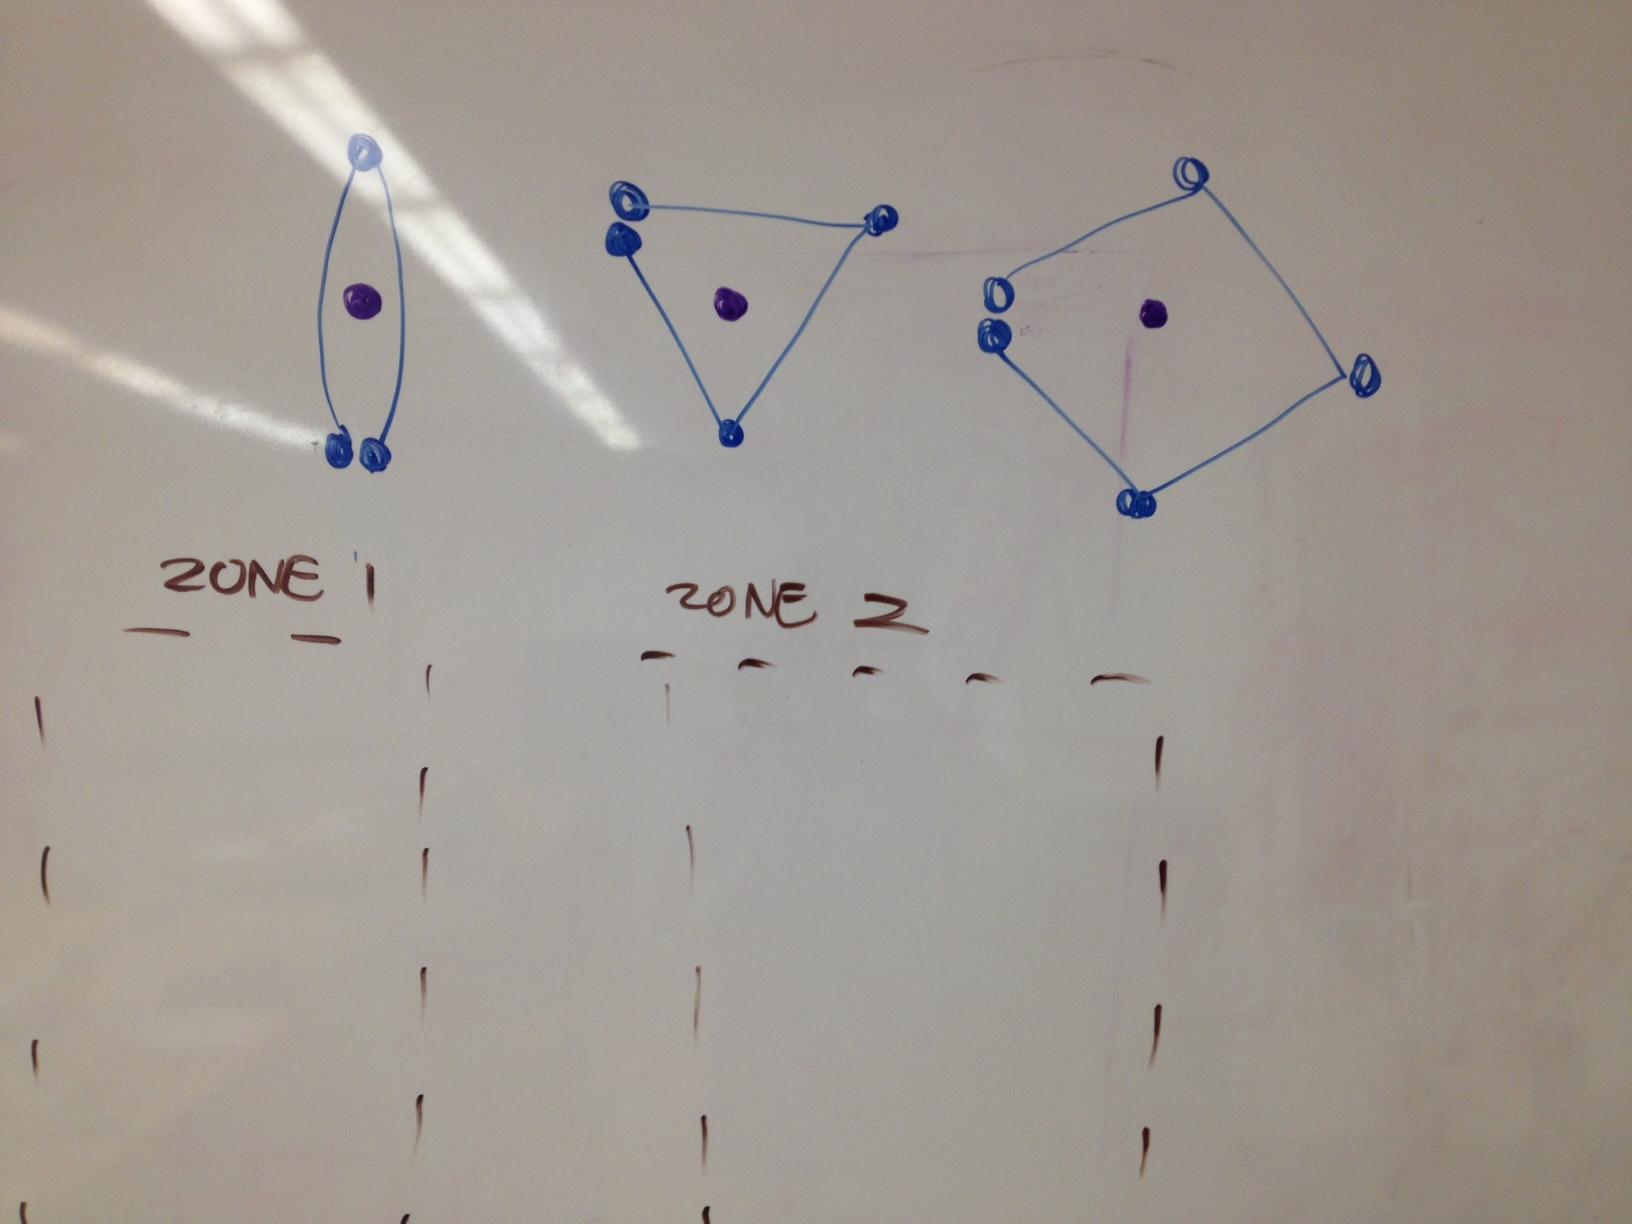 ZONE 1
ZONE 2